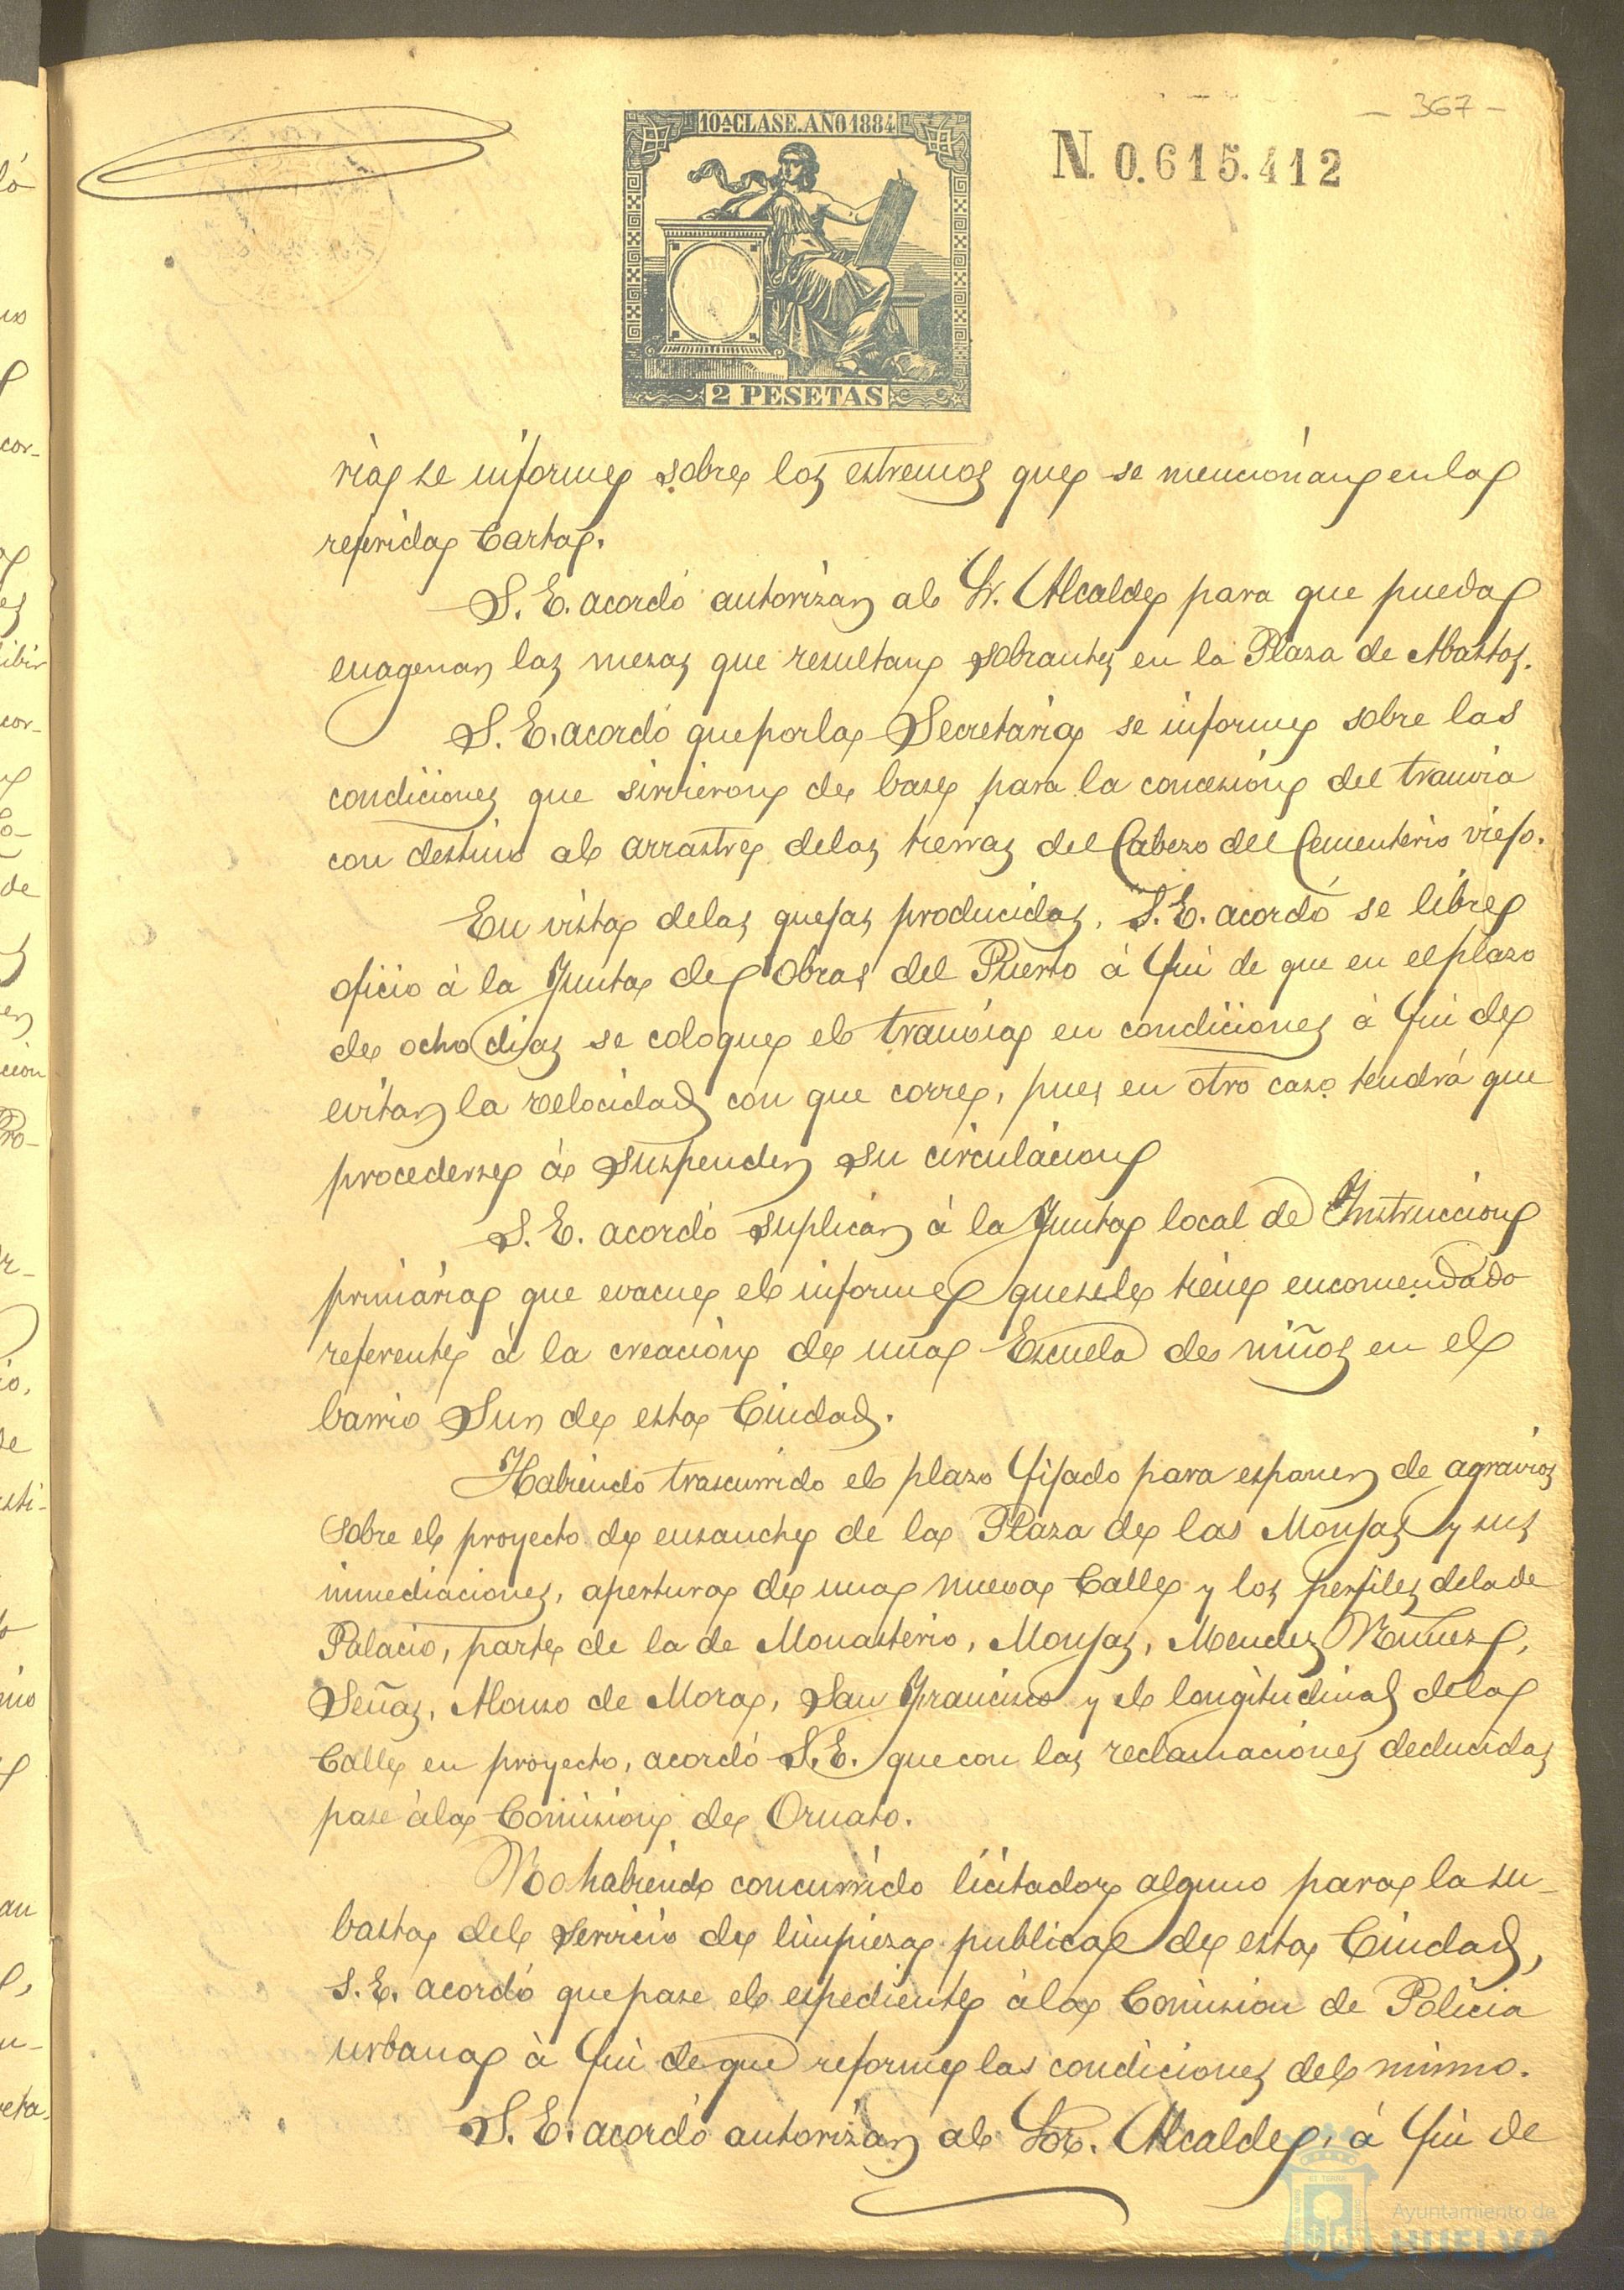 - 367 -
10ª CLASE. AÑO 1884
N. 0.615.412
2 PESETAS
ria se informe sobre los estremos que se mencionan en la
referida Carta.
S. E. acordó autorizar al Sr. Alcalde para que pueda
enagenar las mesas que resultan sobrantes en la Plaza de Abastos.
S. E. acordó que por la Secretaria se informe sobre las
condiciones que sirvieron de base para la concesion del tranvia
con destino al arrastre de las tierras del Cabezo del Cementerio viejo.
En vista de las quejas producidas, S. E. acordó se libre
oficio á la Junta de Obras del Puerto á fin de que en el plazo
de ocho dias se coloque el tranvia en condiciones á fin de
evitar la velocidad con que corre, pues en otro caso tendrá que
procederse á suspender su circulacion
S. E. acordó suplicar á la Junta local de Instruccion
primaria que evacue el informe que se le tiene encomendado
referente á la creacion de una Escuela de niños en el
barrio Sur de esta Ciudad.
Habiendo trascurrido el plazo fijado para esponer de agravios
sobre el proyecto de ensanche de la Plaza de las Monjas y sus
inmediaciones, apertura de una nueva Calle y los perfiles de la de
Palacio, parte de la de Monasterio, Monjas, Mendez Nuñez,
Señas, Alonso de Mora, San Francisco y el longitudinal de la
Calle en proyecto, acordó S. E. que con las reclamaciones deducidas
pase á la Comision de Ornato.
No habiendo concurrido licitador alguno para la su-
basta del servicio de limpieza publica de esta Ciudad,
S. E. acordó que pase el espediente á la Comision de Policia
urbana á fin de que reforme las condiciones del mismo.
S. E. acordó autorizar al Sor. Alcalde, á fin de
Ayuntamiento de
HUELVA